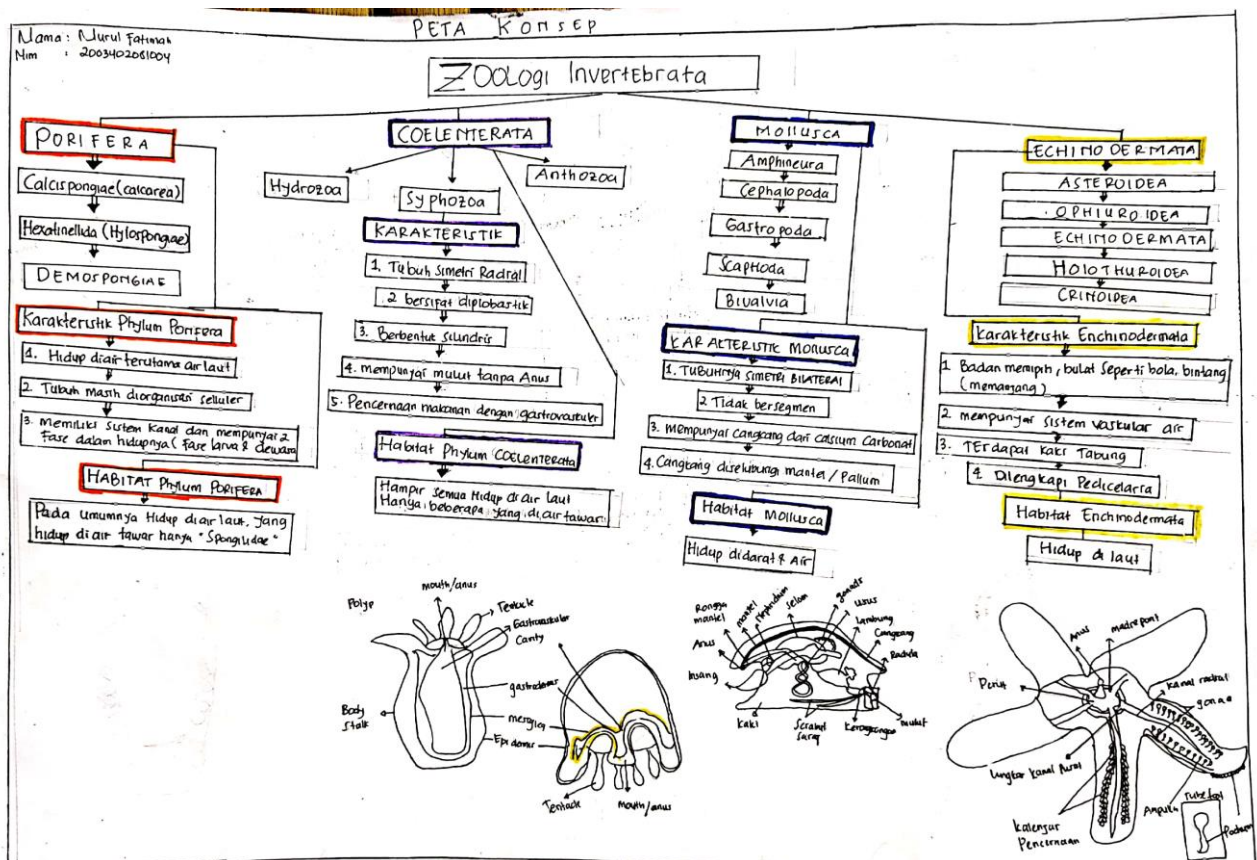 PETA KONSEP
Nama : Nurul Fatimah
Nim : 2003402081004
ZOOLOGI InvertEbrata
PORIFERA
Calcispongiae (calcarea)
Hexatinellida (Hylospongiae)
DEMOSPONGIAE
Karakteristik Phylum Porifera
1. Hidup diair terutama air laut
2. Tubuh masih diorganisasi selluler
3. Memiliki sistem kanal dan mempunyai 2
Fase dalam hidupnya ( Fase larva & dewasa
HABITAT Phylum PORIFERA
Pada umumnya Hidup di air laut, yang
hidup di air tawar hanya "Spongilidae"
COELENTERATA
Hydrozoa
Syphozoa
Anthozoa
KARAKTERISTIK
1. Tubuh Simetri Radial
2 bersifat diplobastik
3. Berbentuk silundris
4. mempunyai mulut tanpa Anus
5. Pencernaan makanan dengan gastrovaskuler
Habitat Phylum COELENTERATA
Hampir semua Hidup di air laut
Hanya beberapa yang di air tawar
MOllUSCA
Amphineura
Cephalopoda
Gastropoda
Scaphoda
Bivalvia
KARAKTERISTIK MOllUSCA
1. TUBUHNYA SIMETRI BILATERAl
2 Tidak bersegmen
3. mempunyai cangkang dari calsium Carbonat
4. Cangkang diselubungi mantel / Pallum
Habitat MOllUSCA
Hidup didarat & Air
ECHINODERMATA
ASTEROIDEA
OPHIUROIDEA
ECHINODERMATA
HOlOTHUROIDEA
CRINOIDEA
Karakteristik Enchinodermata
1 Badan memipih, bulat seperti bola, bintang
(memanjang)
2. mempunyai sistem vaskular air
3. TErdapat kaki Tabung
4. Dilengkapi Pedicelarra
Habitat Enchinodermata
Hidup di laut
Polyp
mouth/anus
Tentacle
Gastrovaskular
Cavity
gastrodermis
Body
Stalk
mesoglea
Epidermis
Tentacle
mouth/anus
Rongga
mantel
mantel
Nephridium
selom
gonads
usus
lambung
Cangkang
Radula
Anus
Insang
Kaki
Serabut
saraf
Kerongkongan
mulut
Anus
madrepont
Kanal radial
gonad
Ampula
Tube feet
Podium
Kalenjar
Pencernaan